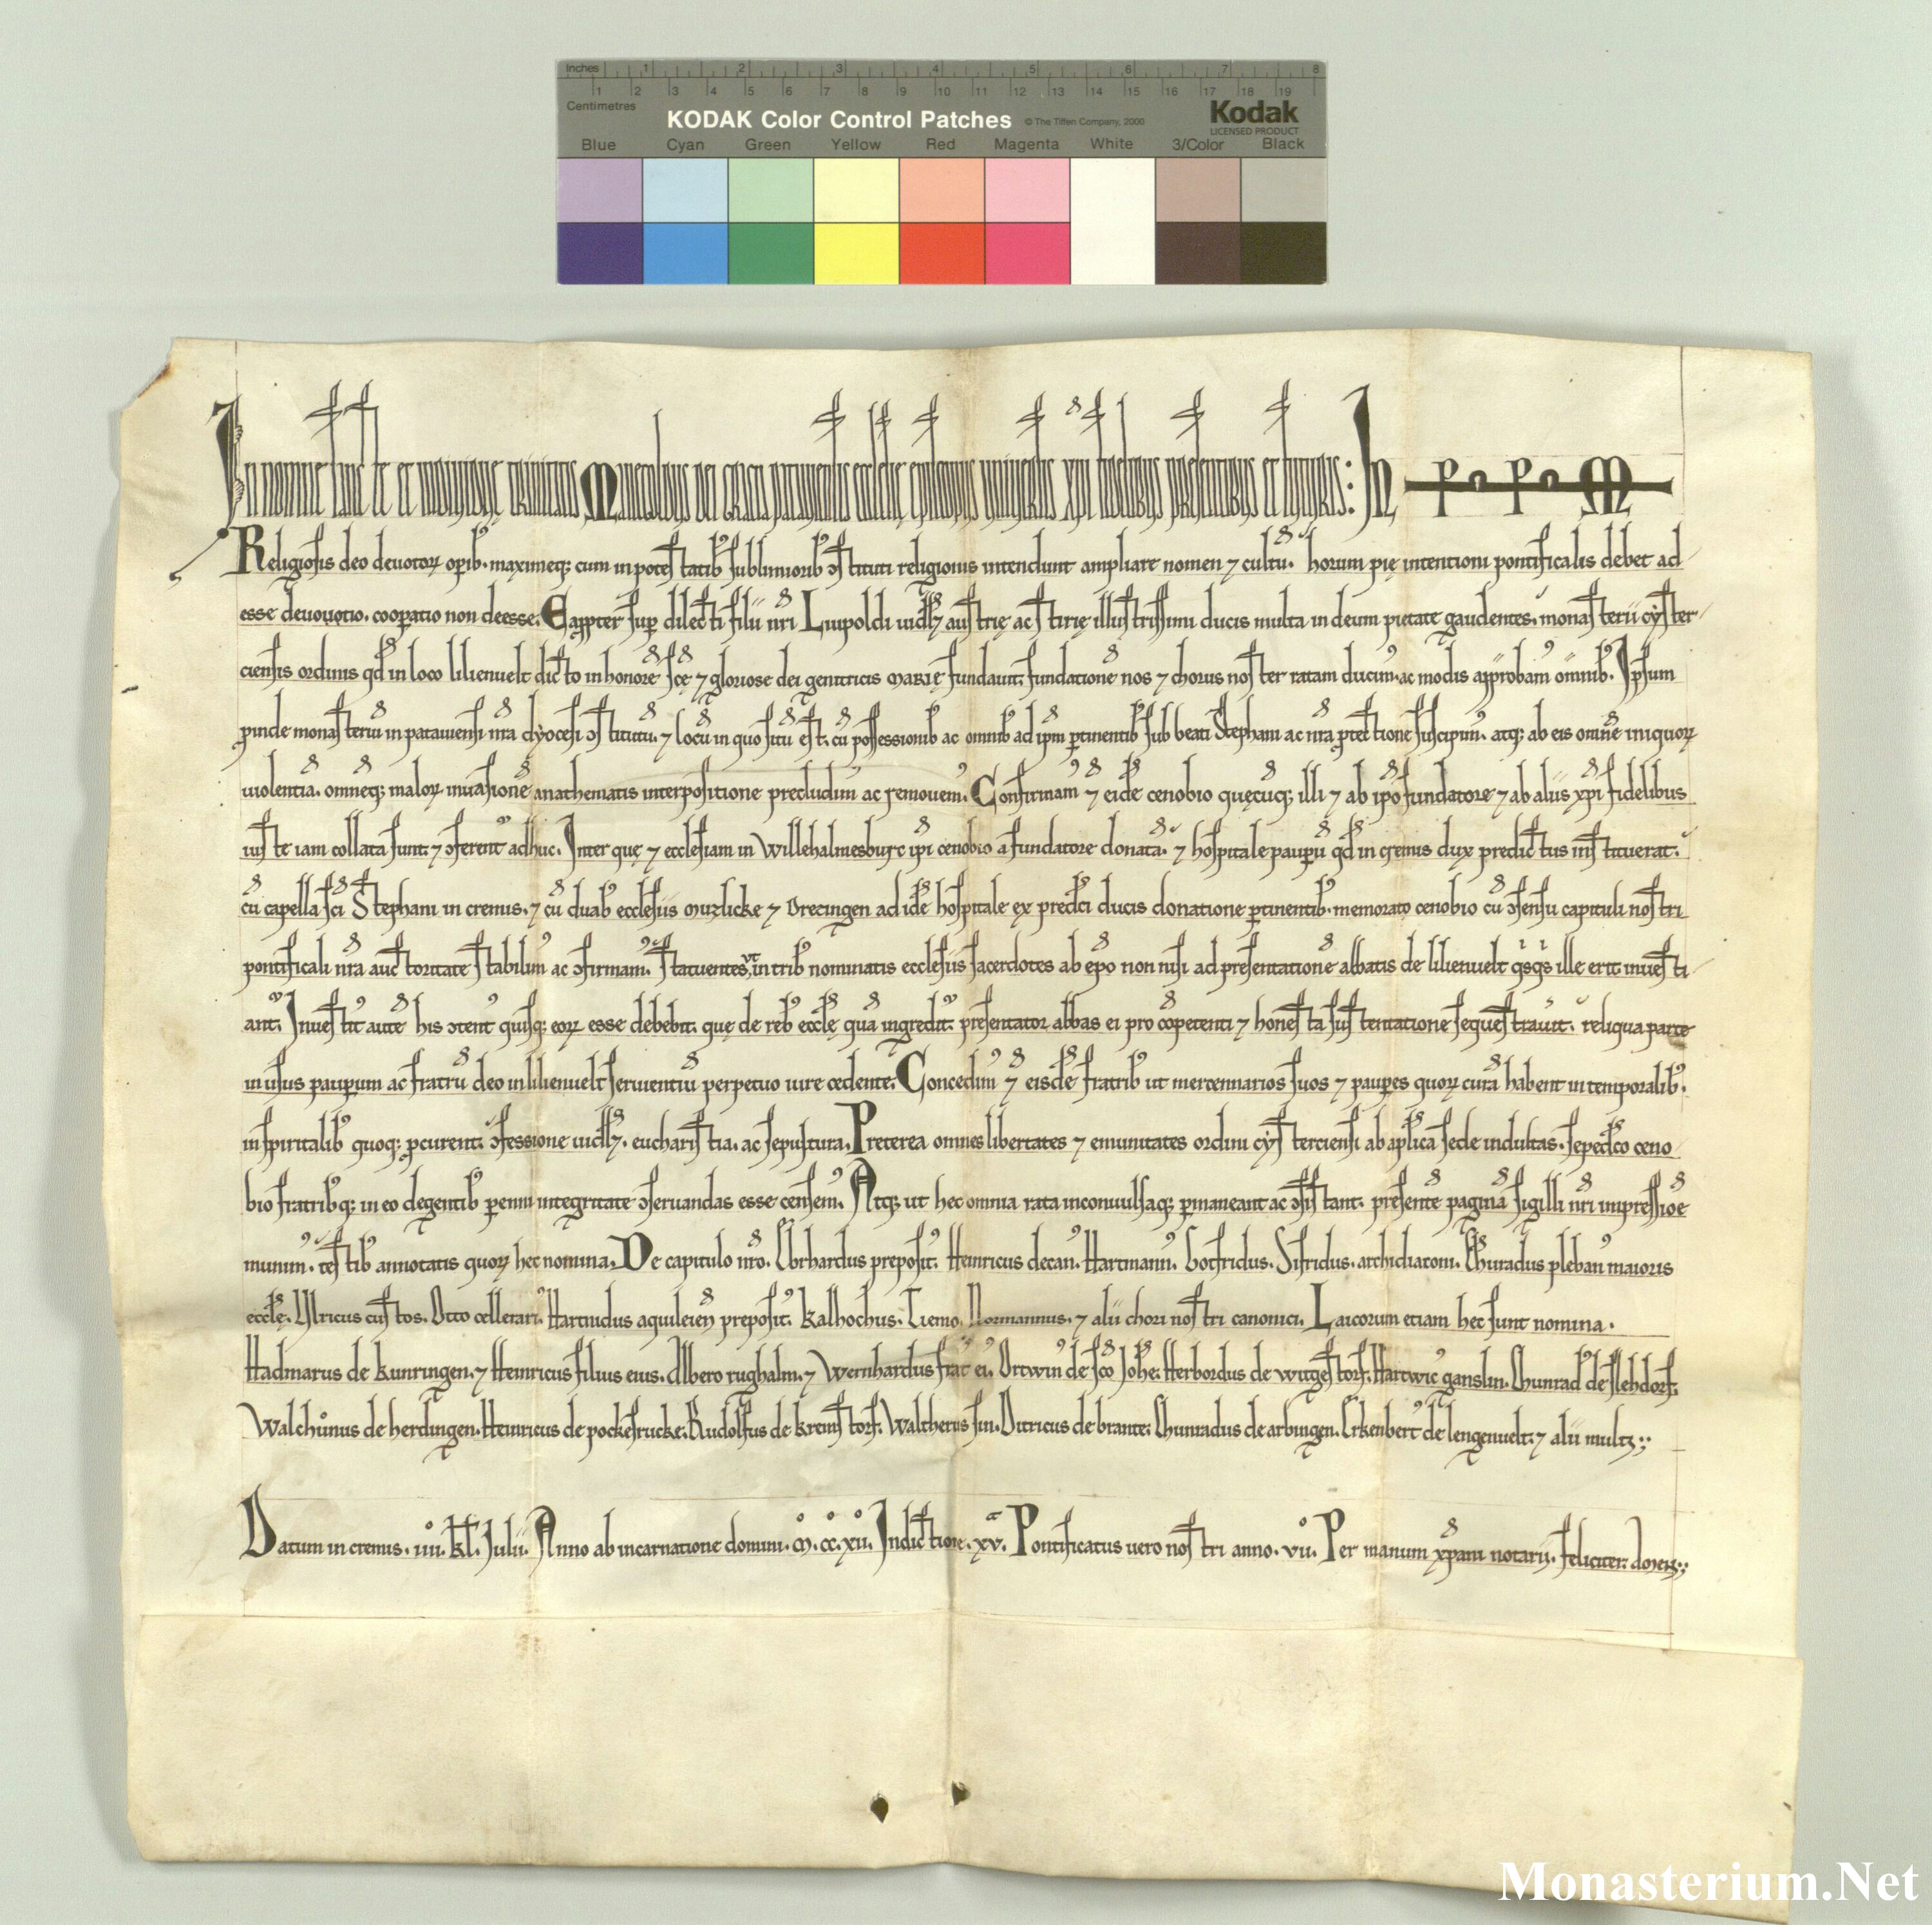 Inches 1 2 3 4 5 6 7 8
Centimetres 1 2 3 4 5 6 7 8 9 10 11 12 13 14 15 16 17 18 19
KODAK Color Control Patches © The Tiffen Company, 2000 Kodak
LICENSED PRODUCT
Blue Cyan Green Yellow Red Magenta White 3/Color Black
In nomine sancte et indiuidue trinitatis Manegoldus dei gracia patauiensis ecclesię episcopus uniuersis xpi fidelibus presentibus et futuris: In p p m
Religiosis deo deuotoꝝ opib᷒. maximeq; cum in potestatib᷒ sublimiorib᷒ ↄstituti religionis intendunt ampliare nomen ⁊ cultū. horum pię intentioni pontificalis debet ad
esse deuouotio. cooꝑatio non deesse. Eapp̱ter suꝑ dilecti filii nr̄i Liupoldi uidlꝫ austrię ac stirię illustrissimi ducis multa in deum pietate gaudentes. monasterii cyster-
ciensis ordinis qd̄ in loco lilienuelt dicto in honorē sc̄ę ⁊ gloriose dei genitricis MARIĘ fundauit. fundationē nos ⁊ chorus noster ratam ducim᷒. ac modis approbam᷒ omnib᷒. Ipsum
ꝓinde monasteriū in patauiensi nr̄a dyocesi ↄstitutū. ⁊ locū in quo sitū est. cū possessionib᷒ ac omnib᷒ ad ipm̄ ꝑtinentib᷒ sub beati Stephani ac nr̄a ꝓtectione suscipim᷒. atq; ab eis omnē iniquoꝝ
uiolentiā. omneq; maloꝝ inuasionē anathematis interpositione precludim᷒ ac remouem᷒. Confirmam᷒ ⁊ eidē cenobio quęcūq; illi ⁊ ab ipō fundatore ⁊ ab aliis xpī fidelibus
iuste iam collata sunt. ⁊ ↄferent᷒ adhuc. Inter quę ⁊ ecclesiam in Willehalmesburc ipi cenobio a fundatore donatā. ⁊ hospitale pauꝑū qd̄ in cremis dux predictus instituerat.
cū capella sc̄i Stephani in cremis. ⁊ cū duab᷒ ecclesiis Murlicke ⁊ Drecingen ad idē hospitale ex predc̄i ducis donatione ꝑtinentib᷒. memorato cenobio cū ↄsensu capituli nostri
pontificali nr̄a auctoritate stabilim᷒ ac ↄfirmam᷒. statuentes, ut in trib᷒ nominatis ecclesiis sacerdotes ab ep̄o non nisi ad presentationē abbatis de lilienuelt qͥsqͥs ille erit inuesti-
ant᷒. Inuestit᷒ autē his ↄtent᷒ quisq; eoꝝ esse debebit. quę de reb᷒ eccl̄e quā ingredit᷒. presentator abbas ei pro cōpetenti ⁊ honesta sustentatione sequestrauit. reliqua parte
in usus pauꝑum ac fratrū deo in lilienuelt seruientiū perpetuo iure cedente. Concedim᷒ ⁊ eisdē fratrib᷒ ut mercennarios suos ⁊ pauꝑes quoꝝ curā habent in temporalib᷒.
in spiritalib᷒ quoq; ꝓcurent. ↄfessione uidlꝫ. eucharistia. ac sepultura. Preterea omnes libertates ⁊ emunitates ordini cysterciensi ab apl̄ica sede indultas. sepedc̄o ceno-
bio fratrib᷒q; in eo degentib᷒ ꝑenni integritate ↄseruandas esse censem᷒. Atq; ut hec omnia rata inconuulsaq; ꝑmaneant ac ↄsistant. presentē paginā sigilli nr̄i impressiōe
munim᷒. testib᷒ annotatis quoꝝ hec nomina. De capitulo nr̄o. Ebrhardus preposit᷒. Heinricus decan᷒. Hartmann᷒. Gotfridus. Sifridus. archidiaconi. Chunradus pleban᷒ maioris
eccl̄ę. Ulricus custos. Otto cellerari᷒. Hartnidus aquileień preposit᷒. Kalhochus. Tiemo. Normannus. ⁊ alii chori nostri canonici. Laicorum etiam hec sunt nomina.
Hadmarus de Kunringen. ⁊ Heinricus filius eius. Albero rughalm. ⁊ Wernhardus frat᷒ ei᷒. Ortwin᷒ de sc̄o Johē. Herbordus de Witgestorf. Hartwic᷒ ganslin. Chunrad᷒ de slehdorf.
Walchůnus de herdingen. Heinricus de pochesrucke. Rudolfus de kremstorf. Waltherus sin. Ditricus de brante. Chunradus de arbingen. Erkenbert᷒ de lengenuelt. ⁊ alii multꝫ;;
Datum in cremis. iiii.º kl̄. Julii. Anno ab incarnatione domini. Mº. ccº. xiiº. Indictione. xvª. Pontificatus uero nostri anno. viiº. Per manum xp̄iani notarii. feliciter.
Monasterium.Net